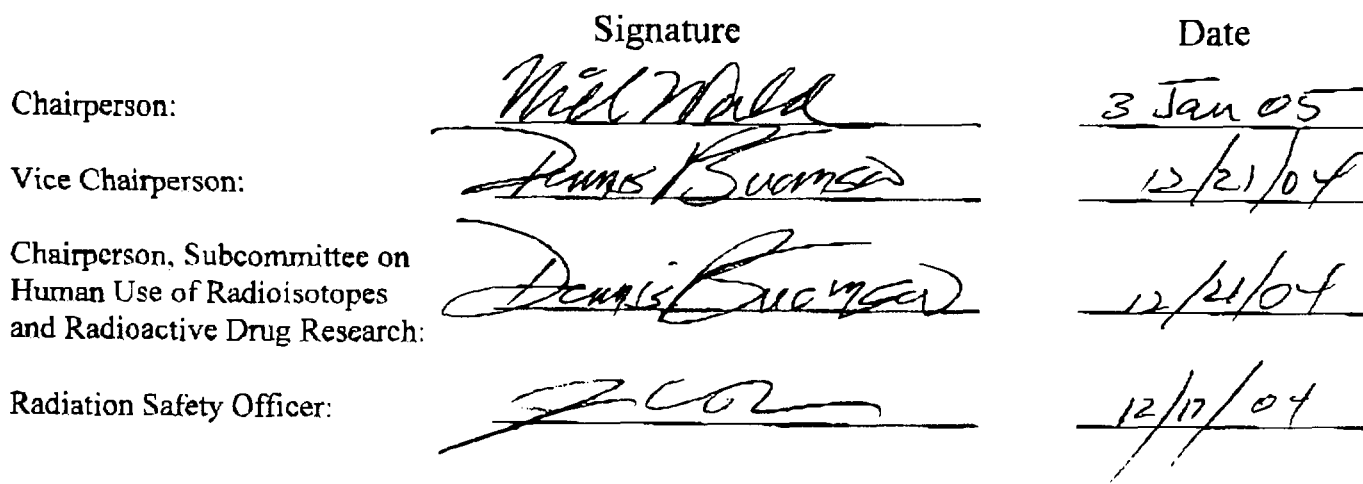 Signature Date
Chairperson: Niel Wald 3 Jan 05
Vice Chairperson: Dennis 12/21/04
Chairperson, Subcommittee on
Human Use of Radioisotopes Dennis 12/21/04
and Radioactive Drug Research:
Radiation Safety Officer: 12/17/04